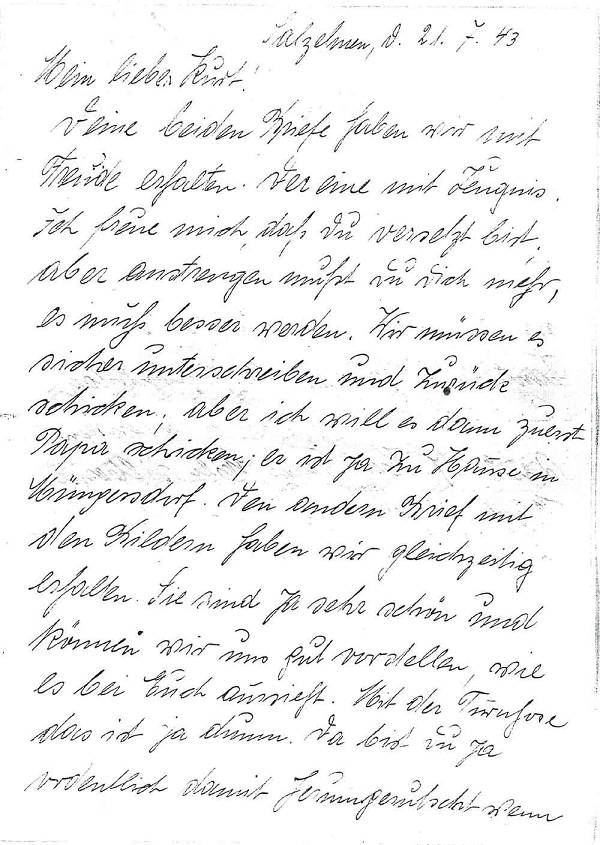 Salzelmen, d. 21. 7. 43
Mein lieber Kurt!
Deine beiden Briefe haben wir mit
Freude erhalten. Der eine mit Zeugnis.
Ich freue mich, daß Du versetzt bist,
aber anstrengen mußt Du Dich mehr,
es muß besser werden. Wir müssen es
sicher unterschreiben und zurück
schicken, aber ich will es dann zuerst
Papa schicken, er ist ja zu Hause in
Müngersdorf. Den andern Brief mit
den Bildern haben wir gleichzeitig
erhalten. Sie sind ja sehr schön und
können wir uns gut vorstellen, wie
es bei Euch aussieht. Mit der Turnhose
das ist ja dumm. Da bist Du ja
ordentlich damit herumgerutscht wenn